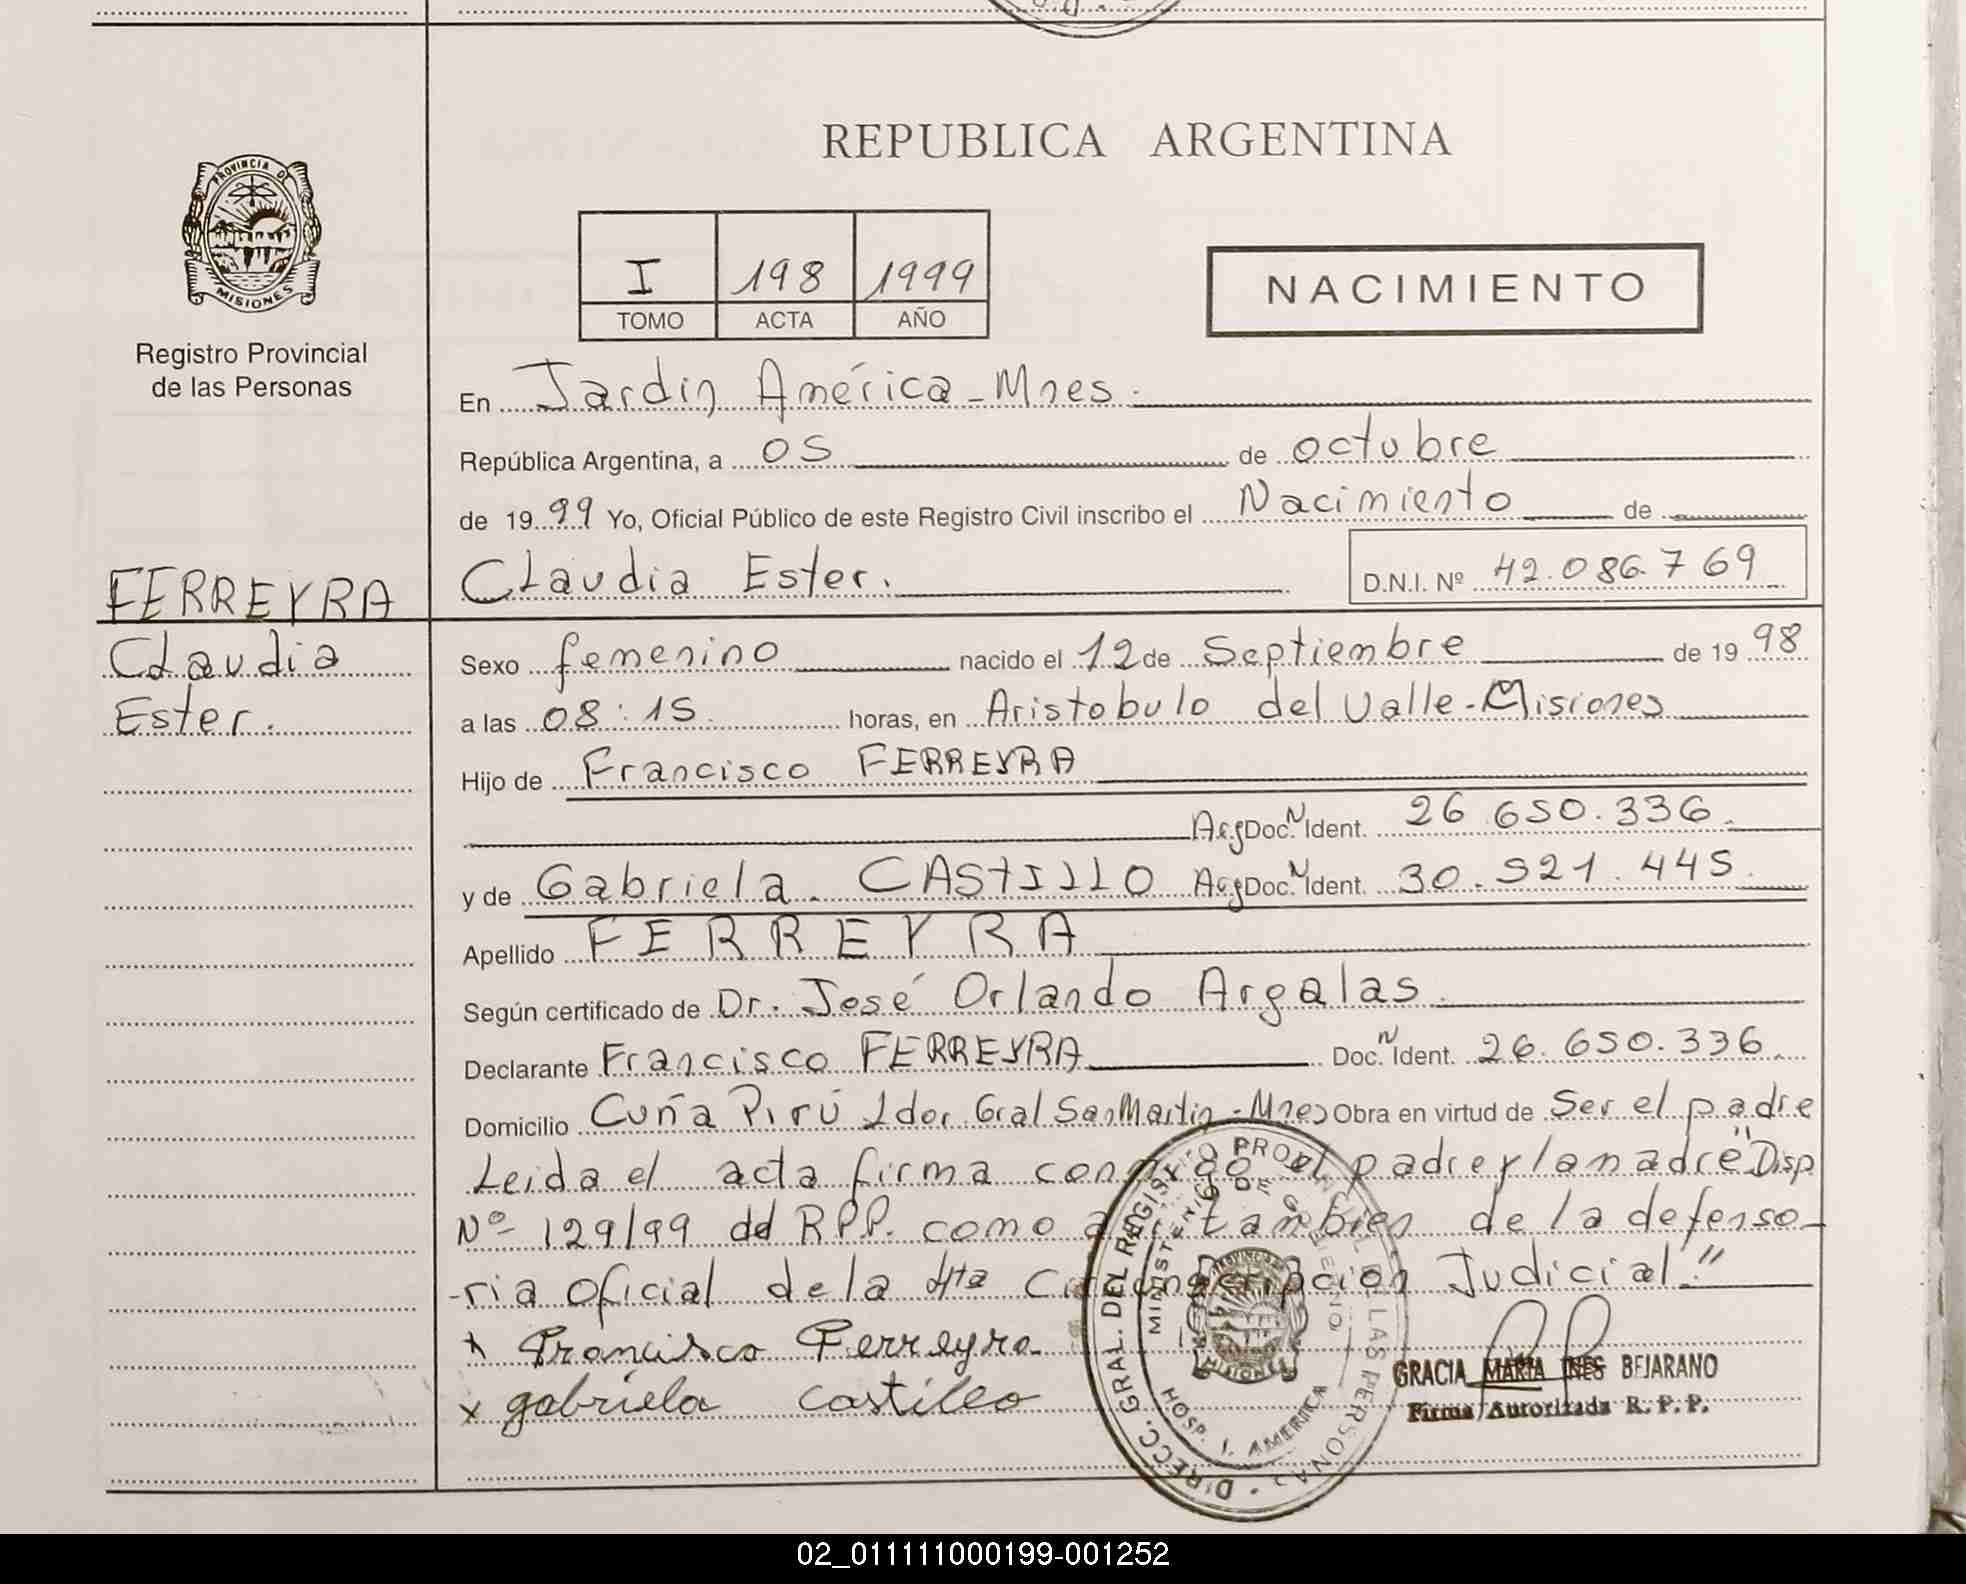 REPUBLICA ARGENTINA
PROVINCIA DE
MISIONES
Registro Provincial
de las Personas
I 198 1999
TOMO ACTA AÑO
NACIMIENTO
En Jardin América - Mnes.
República Argentina, a 05 de octubre
de 1999 Yo, Oficial Público de este Registro Civil inscribo el Nacimiento de
Claudia Ester. D.N.I. Nº 42.086.769
FERREYRA
Claudia
Ester.
Sexo femenino nacido el 12 de Septiembre de 1998
a las 08:15 horas, en Aristobulo del Valle - Misiones
Hijo de Francisco FERREYRA
Arg Doc. N Ident. 26 650.336.
y de Gabriela CASTILLO Arg Doc. N Ident. 30.521.445.
Apellido FERREYRA
Según certificado de Dr. José Orlando Argalas.
Declarante Francisco FERREYRA Doc. N Ident. 26.650.336.
Domicilio Cuña Pirú Ldor. Gral San Martin - Mnes Obra en virtud de Ser el padre
Leida el acta firma conmigo el padre y la madre "Disp
Nº 129/99 del RPP. como asi tambien de la defenso-
-ria oficial de la 4ta Circunscripcion Judicial."
x Francisco Ferreyra
x gabriela castileo
DIRECC. GRAL. DEL REGISTRO PROVINCIAL DE LAS PERSONAS
MINISTERIO DE GOBIERNO
HOSP. J. AMERICA
MISIONES
GRACIA MARIA INES BEJARANO
Firma Autorizada R.P.P.
02_011111000199-001252